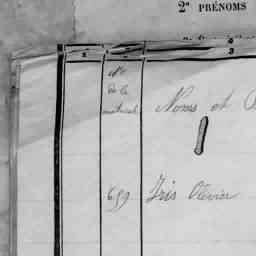 2º PRÉNOMS
2 3
Nº
de la
matricule
Noms et
659 Iris Olivier